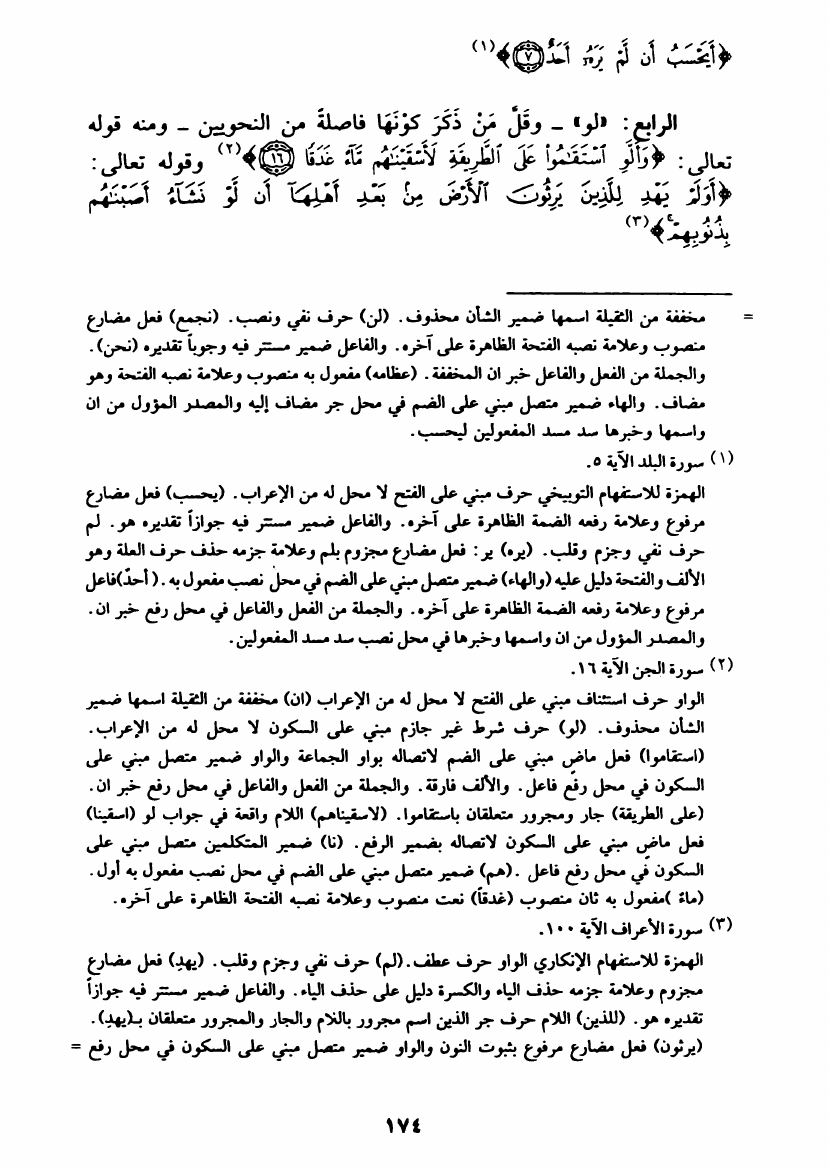 ﴿أَيَحْسَبُ أَن لَّمْ يَرَهُۥٓ أَحَدٌ ﴿٧﴾﴾(١)
الرابع: «لو» ـ وقَلَّ مَنْ ذَكَرَ كَوْنَهَا فاصلةً من النحويين ـ ومنه قوله
تعالى: ﴿وَأَلَّوِ ٱسْتَقَٰمُوا۟ عَلَى ٱلطَّرِيقَةِ لَأَسْقَيْنَٰهُم مَّآءً غَدَقًا ﴿١٦﴾﴾(٢) وقوله تعالى:
﴿أَوَلَمْ يَهْدِ لِلَّذِينَ يَرِثُونَ ٱلْأَرْضَ مِنۢ بَعْدِ أَهْلِهَآ أَن لَّوْ نَشَآءُ أَصَبْنَٰهُم
بِذُنُوبِهِمْ﴾(٣)
= مخففة من الثقيلة اسمها ضمير الشأن محذوف. (لن) حرف نفي ونصب. (نجمع) فعل مضارع
منصوب وعلامة نصبه الفتحة الظاهرة على آخره. والفاعل ضمير مستتر فيه وجوباً تقديره (نحن).
والجملة من الفعل والفاعل خبر ان المخففة. (عظامه) مفعول به منصوب وعلامة نصبه الفتحة وهو
مضاف. والهاء ضمير متصل مبني على الضم في محل جر مضاف إليه والمصدر المؤول من ان
واسمها وخبرها سد مسد المفعولين ليحسب.
(١) سورة البلد الآية ٥.
الهمزة للاستفهام التوبيخي حرف مبني على الفتح لا محل له من الإعراب. (يحسب) فعل مضارع
مرفوع وعلامة رفعه الضمة الظاهرة على آخره. والفاعل ضمير مستتر فيه جوازاً تقديره هو. لم
حرف نفي وجزم وقلب. (يره) ير: فعل مضارع مجزوم بلم وعلامة جزمه حذف حرف العلة وهو
الألف والفتحة دليل عليه (والهاء) ضمير متصل مبني على الضم في محل نصب مفعول به. (أحدٌ)فاعل
مرفوع وعلامة رفعه الضمة الظاهرة على آخره. والجملة من الفعل والفاعل في محل رفع خبر ان.
والمصدر المؤول من ان واسمها وخبرها في محل نصب سد مسد المفعولين.
(٢) سورة الجن الآية ١٦.
الواو حرف استئناف مبني على الفتح لا محل له من الإعراب (ان) مخففة من الثقيلة اسمها ضمير
الشأن محذوف. (لو) حرف شرط غير جازم مبني على السكون لا محل له من الإعراب.
(استقاموا) فعل ماضٍ مبني على الضم لاتصاله بواو الجماعة والواو ضمير متصل مبني على
السكون في محل رفع فاعل. والألف فارقة. والجملة من الفعل والفاعل في محل رفع خبر ان.
(على الطريقة) جار ومجرور متعلقان باستقاموا. (لاسقيناهم) اللام واقعة في جواب لو (اسقينا)
فعل ماضٍ مبني على السكون لاتصاله بضمير الرفع. (نا) ضمير المتكلمين متصل مبني على
السكون في محل رفع فاعل .(هم) ضمير متصل مبني على الضم في محل نصب مفعول به أول.
(ماءً )مفعول به ثان منصوب (غدقاً) نعت منصوب وعلامة نصبه الفتحة الظاهرة على آخره.
(٣) سورة الأعراف الآية ١٠٠.
الهمزة للاستفهام الإنكاري الواو حرف عطف.(لم) حرف نفي وجزم وقلب. (يهدِ) فعل مضارع
مجزوم وعلامة جزمه حذف الياء والكسرة دليل على حذف الياء. والفاعل ضمير مستتر فيه جوازاً
تقديره هو. (للذين) اللام حرف جر الذين اسم مجرور باللام والجار والمجرور متعلقان بـ(يهدِ).
(يرثون) فعل مضارع مرفوع بثبوت النون والواو ضمير متصل مبني على السكون في محل رفع =
١٧٤